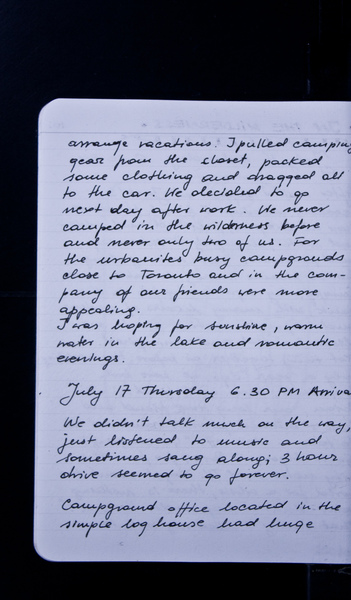 arrange vacations. I pulled camping
gear from the closet, packed
some clothing and dragged all
to the car. We decided to go
next day after work. We never
camped in the wilderness before
and never only two of us. For
the urbanites busy campgrounds
close to Toronto and in the com-
pany of our friends were more
appealing.
I was hoping for sunshine, warm
water in the lake and romantic
evenings.
July 17 Thursday 6.30 PM Arriva
We didn't talk much on the way,
just listened to music and
sometimes sang along; 3 hour
drive seemed to go forever.
Campground office located in the
simple log house had huge